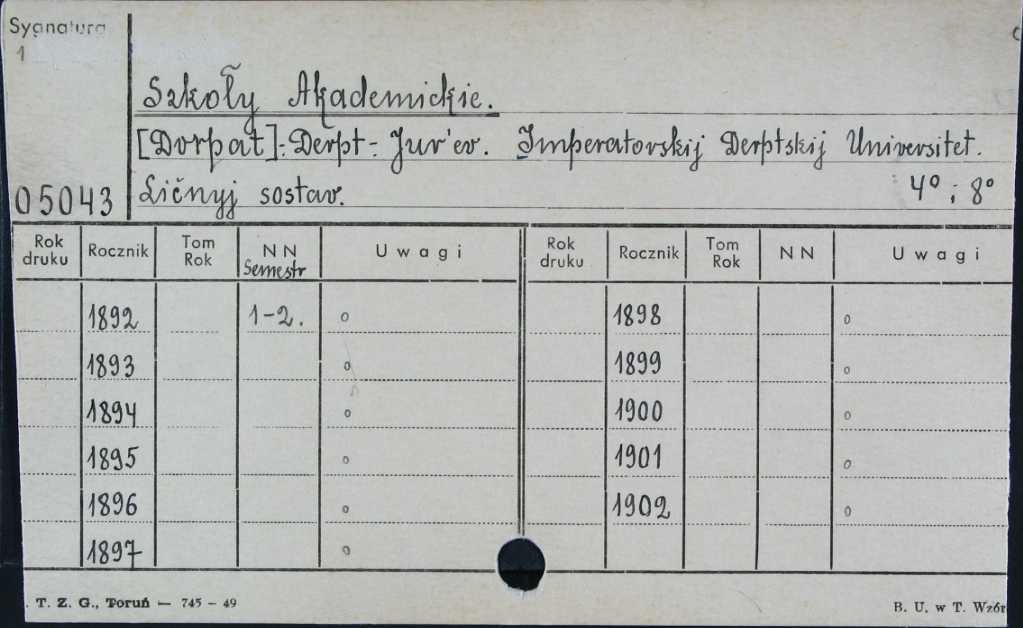 Sygnatura
1
Szkoły Akademickie.
[Dorpat]-Derpt-Jur'ev. Imperatorskij Derptskij Universitet.
05043 Ličnyj sostav. 4° ; 8°
Rok druku Rocznik Tom Rok NN Semestr Uwagi Rok druku Rocznik Tom Rok NN Uwagi
1892 1-2. o 1898 o
1893 o 1899 o
1894 o 1900 o
1895 o 1901 o
1896 o 1902 o
1897 o
. T. Z. G., Toruń — 745 – 49 B. U. w T. Wzór